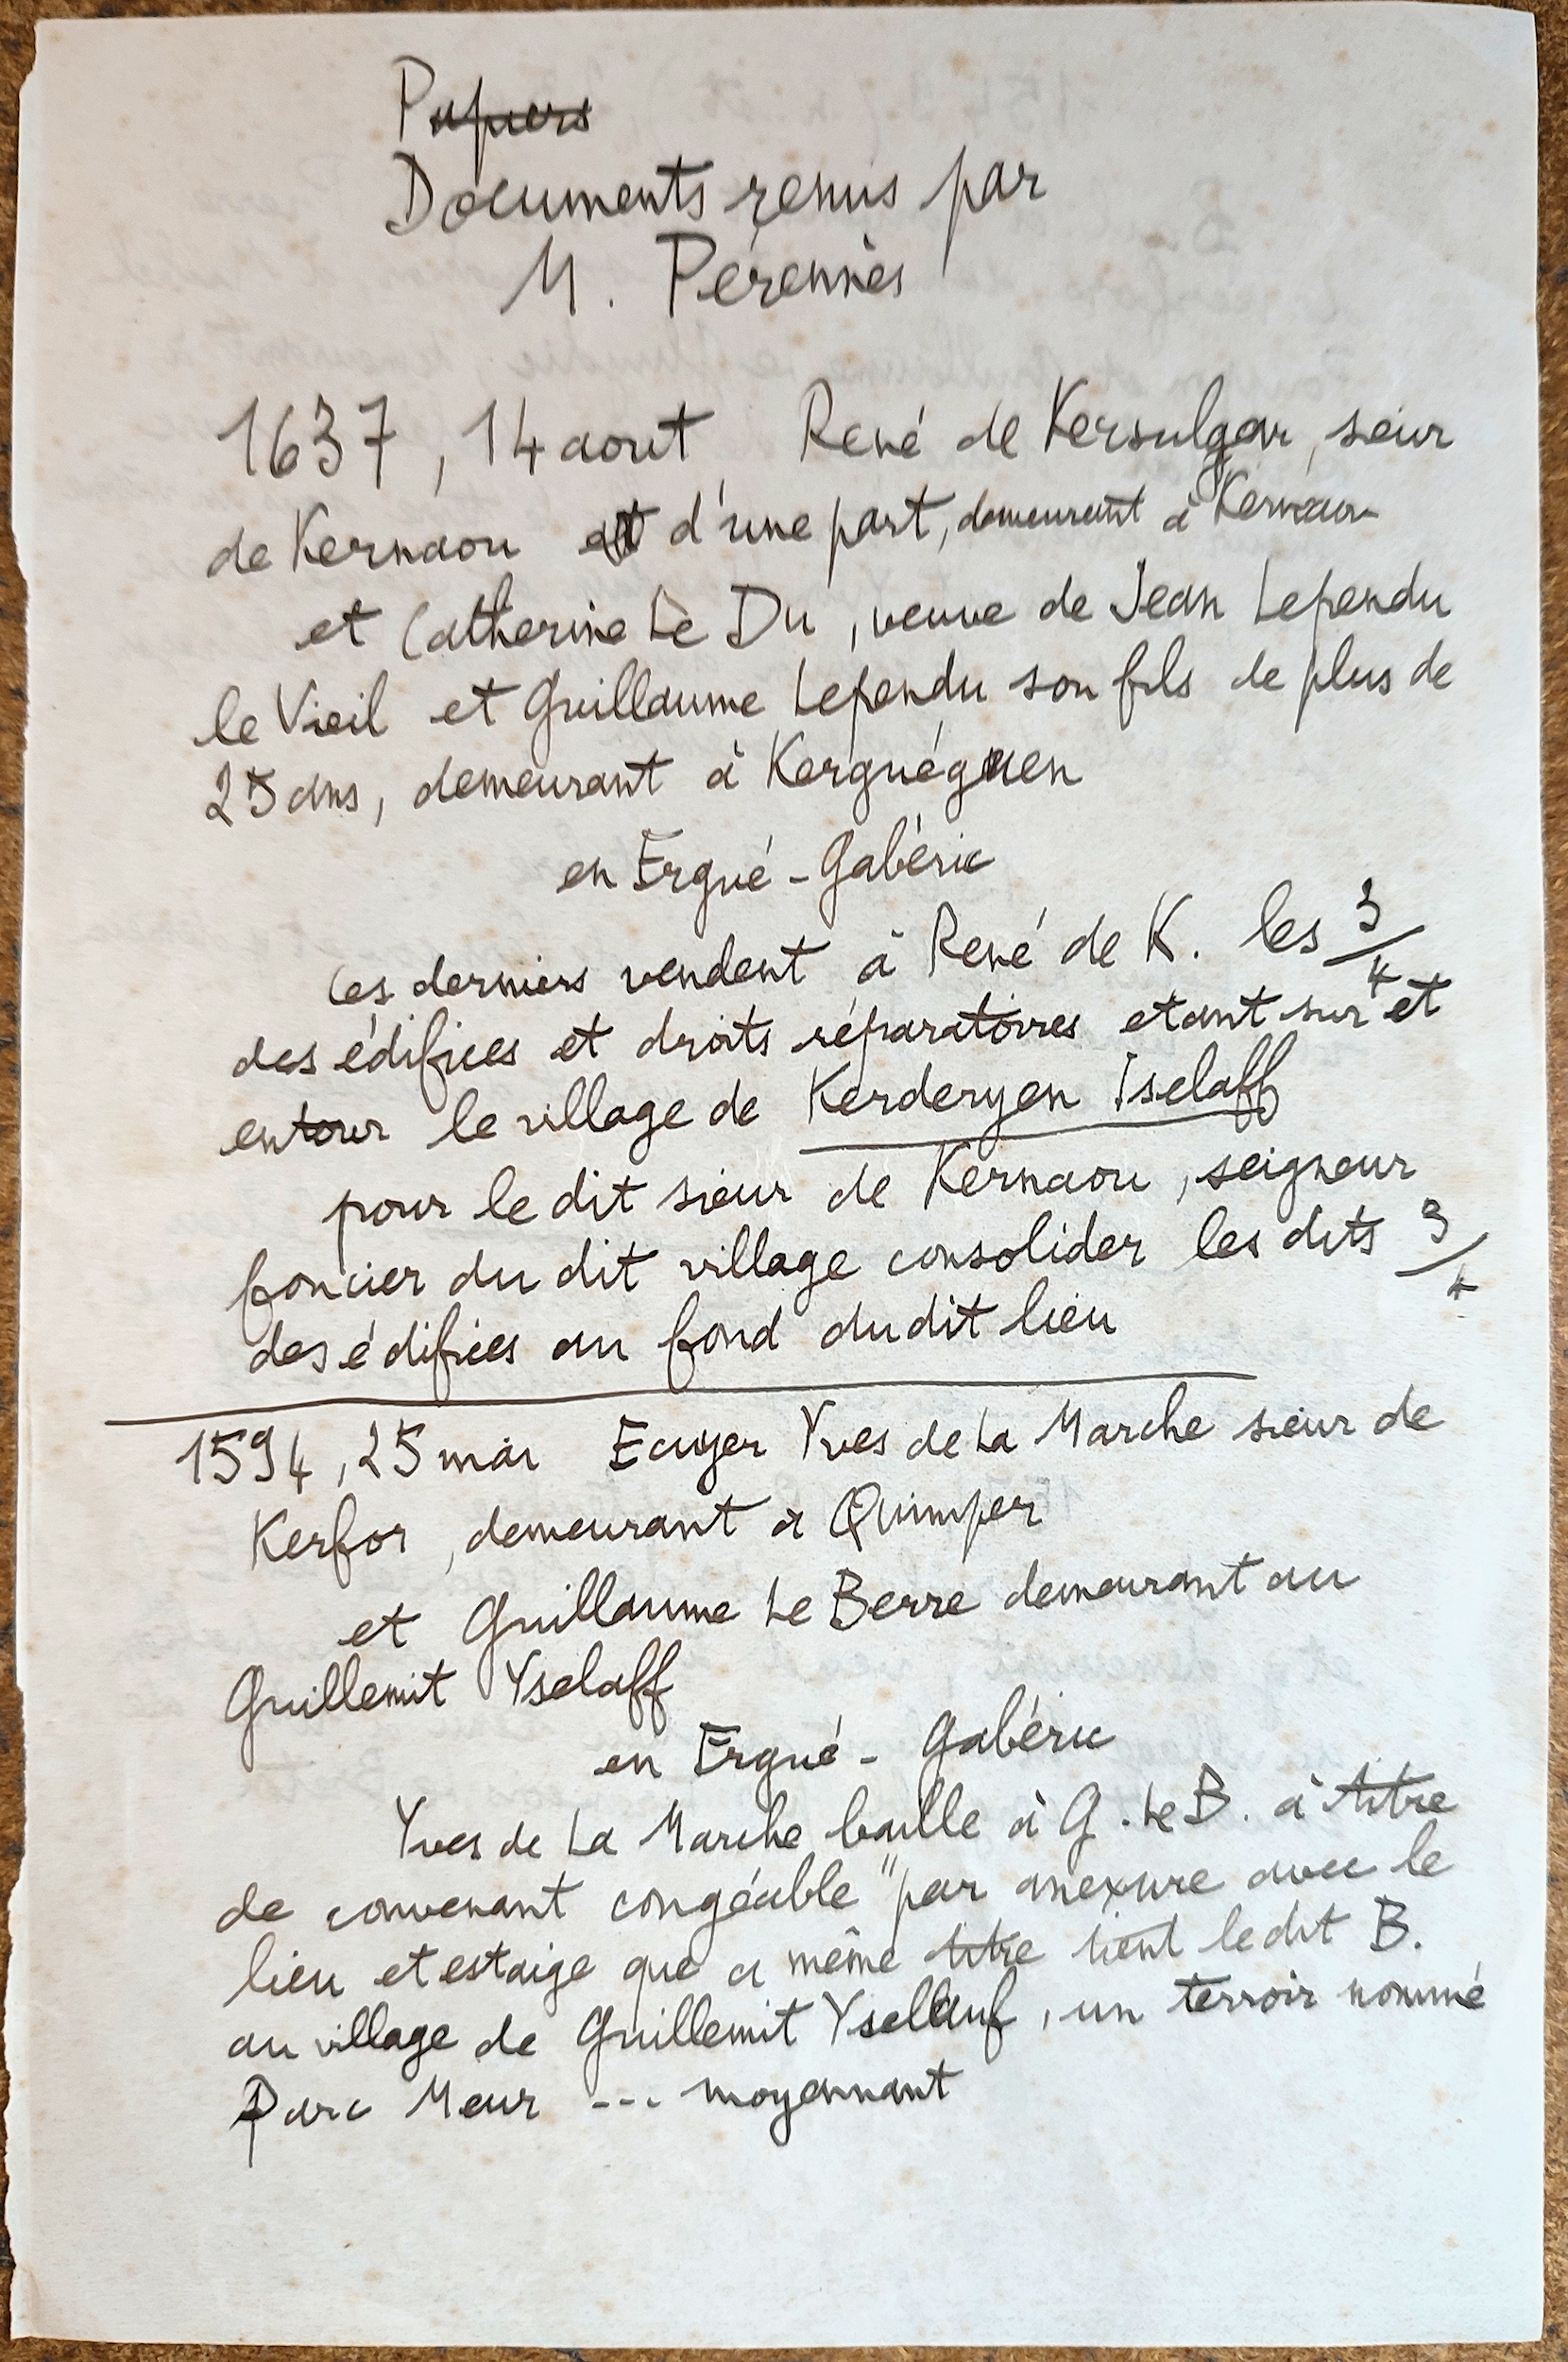 Papiers
Documents remis par
M. Pérennès
1637, 14 aout René de Kersulgar, sieur
de Kernaou d'une part, demeurant à Kernaou
et Catherine Le Du, veuve de Jean Lependu
le Vieil et Guillaume Lependu son fils de plus de
25 ans, demeurant à Kerguéguen
en Ergué-Gabéric
Ces derniers vendent à René de K. les 3/4
des édifices et droits réparatoires etant sur et
entour le village de Kerderyen Iselaff
pour le dit sieur de Kernaou, seigneur
foncier du dit village consolider les dits 3/4
des édifices au fond du dit lieu
1594, 25 mai Ecuyer Yves de La Marche sieur de
Kerfor, demeurant à Quimper
et Guillaume Le Berre demeurant au
Guillemit Yselaff
en Ergué-Gabéric
Yves de La Marche baille à G. Le B. à titre
de convenant congéable "par anexure avec le
lieu et estaige que a même titre tient le dit B.
au village de Guillemit Yselauf, un terroir nommé
Parc Meur --- moyennant